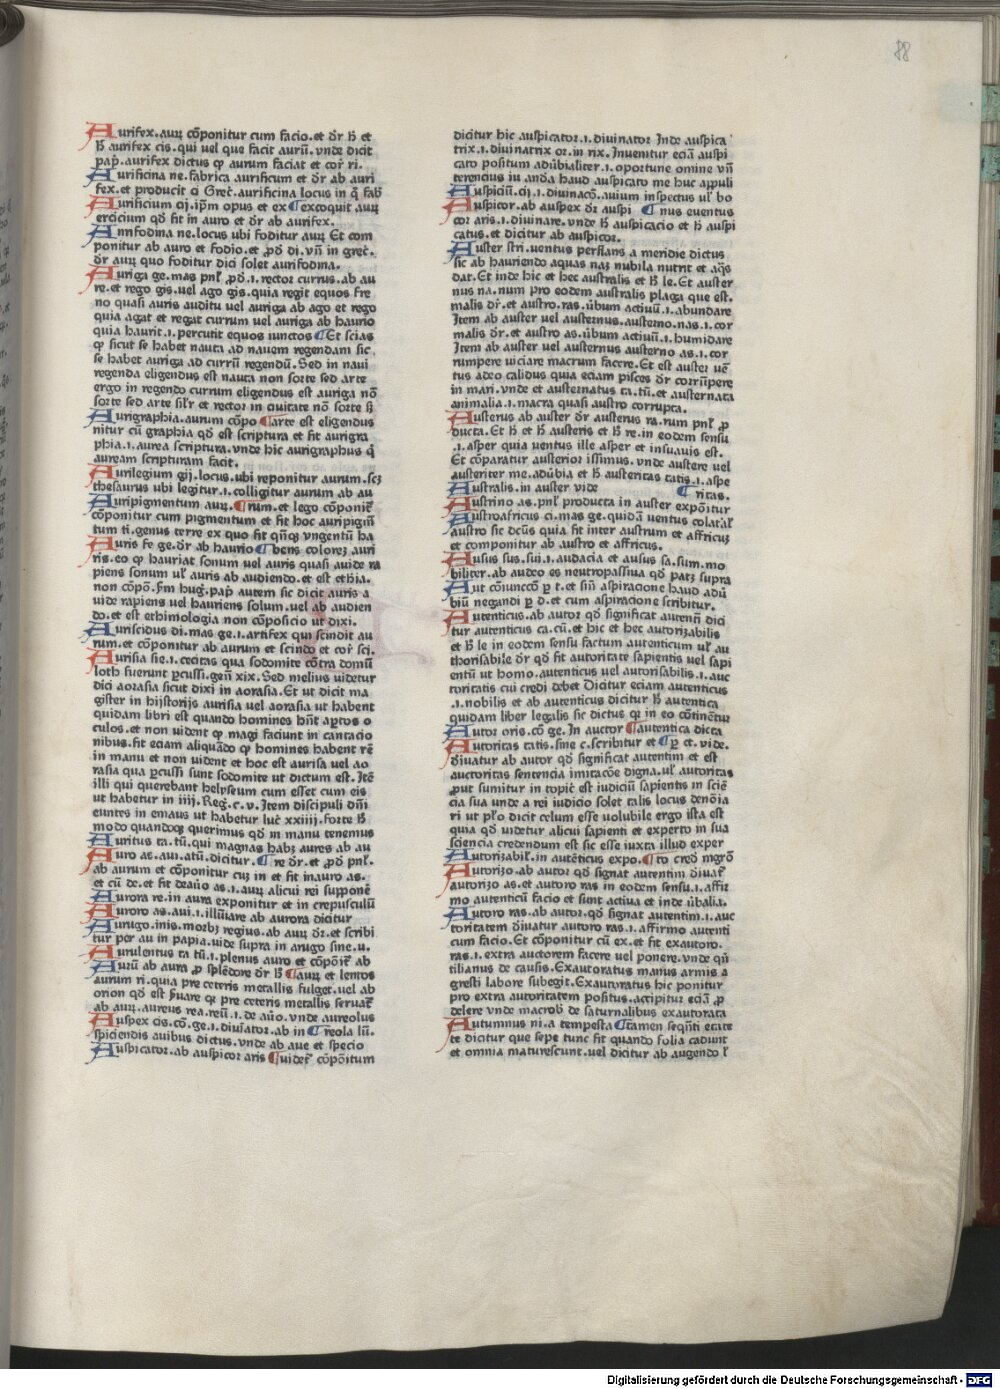 88
Aurifex. aurꝝ cōponitur cum facio. et dr̄ ħ et
ħ aurifex cis. qui vel que facit aurū. vnde dicit
pap̄. aurifex dictus ꝙ aurum faciat et cor̄ ri.
Aurificina ne. fabrica aurificum et dr̄ ab auri
fex. et producit ci Grec̄. aurificina locus in q̄ fabͬ
Aurificium cij. ip̄m opus et ex ¶ excoquit aurꝝ
ercicium qd̄ fit in auro et dr̄ ab aurifex.
Aurifodina ne. locus vbi foditur aurꝝ Et com
ponitur ab auro et fodio. et ꝓd̄ di. vn̄ in grec̄.
dr̄ aurꝝ quo foditur dici solet aurifodina.
Auriga ge. mas pnl̄t ꝓd̄. i. rector currus. ab au
re. et rego gis. vel ago gis. quia regit equos fre
no quasi auris auditu uel auriga ab ago et rego
quia agat et regat currum uel auriga ab haurio
quia haurit. i. percutit equos iunctos ¶ Et scias
ꝙ sicut se habet nauta ad nauem regendam sic
se habet auriga ad currū regendū. Sed in naui
regenda eligendus est nauta non sorte sed arte
ergo in regendo currum eligendus est auriga nō
sorte sed arte sil̄r et rector in ciuitate nō sorte si
Aurigraphia. aurum cōpo ¶ arte est eligendus
nitur cū graphia qd̄ est scriptura et fit aurigra
phia. i. aurea scriptura. vnde hic aurigraphus q̄
auream scripturam facit.
Aurilegium gij. locus. ubi reponitur aurum. scꝫ
thesaurus ubi legitur. i. colligitur aurum ab au
Auripigmentum aurꝝ. ¶ rum. et lego cōponit̄
cōponitur cum pigmentum et fit hoc auripigm̄
tum ti. genus terre ex quo fit qn̄qꝫ vngentū ha
Auris fe ge. dr̄ ab haurio ¶ bens colorez auri
ris. eo ꝙ hauriat sonum uel auris quasi auide ra
piens sonum ul̄ auris ab audiendo. et est ethia.
non cōpō. s̄m hug. pap̄ autem sic dicit auris a
uide rapiens vel hauriens solum. uel ab audien
do. et est ethimologia non cōposicio ut dixi.
Auriscidus di. mas ge. i. artifex qui scindit au
rum. et cōponitur ab aurum et scindo et cor̄ sci.
Aurisia sie. i. cecitas qua sodomite cōtra domū
loth fuerunt ꝑcussi. gen̄ xix. Sed melius uidetur
dici aorasia sicut dixi in aorasia. Et ut dicit ma
gister in hijstorijs aurisia vel aorasia ut habent
quidam libri est quando homines hn̄t aꝑtos o
culos. et non uident ꝙ magi faciunt in cantacio
nibus. fit eciam aliquādo ꝙ homines habent rē
in manu et non uident et hoc est aurisa vel ao
rasia qua ꝑcussi sunt sodomite ut dictum est. Itē
illi qui querebant helyseum cum esset cum eis
ut habetur in iiij. Reḡ. c. v. Item discipuli dn̄i
euntes in emaus ut habetur luc̄ xxiiij. forte ħ
modo quandoqꝫ querimus qd̄ in manu tenemus
Auritus ta. tū. qui magnas habꝫ aures ab au
Auro as. aui. atū. dicitur. ¶ re dr̄. et ꝓd̄ pnl̄t.
ab aurum et cōponitur cuꝫ in et fit inauro as.
et cū de. et fit deauō as. i. aurꝝ alicui rei supponē
Aurora re. in aura exponitur et in crepusculū
Auroro as. aui. i. illūiare ab aurora dicitur
Aurugo. inis. morbꝫ regius. ab aurꝝ dr̄. et scribi
tur per au in papia. uide supra in arugo sine. u.
Aurulentus ta tū. i. plenus auro et cōpōit̄ ab
Aurū ab aura ꝓ splēdore dr̄ ħ ¶ aurꝝ et lentos
aurum ri. quia pre ceteris metallis fulget. uel ab
orion qd̄ est s̄uare qꝛ pre ceteris metallis seruat̄
ab aurꝝ. aureus rea. reū. i. de aūo. vnde aureolus
Auspex cis. cō. ge. i. diuīator. ab in ¶ reola lū.
spiciendis auibus dictus. vnde ab aue et specio
Auspicator. ab auspicor aris ¶ uidet̄ cōpōnitum
dicitur hic auspicator. i. diuinator Inde auspica
trix. i. diuinatrix or. in rix. Inuenitur eciā auspi
cato positum adūbialiter. i. oportune omine vn̄
terencius iu anda haud auspicato me huc appuli
Auspiciū. cij. i. diuinacō. auium inspectus ul̄ bo
Auspicor. ab auspex dr̄ auspi ¶ nus euentus
cor aris. i. diuinare. vnde ħ auspicacio et ħ auspi
catus. et dicitur ab auspicor.
Auster stri. uentus perflans a meridie dictus
sic ab hauriendo aquas naꝫ nubila nutrit et aq̄s
dat. Et inde hic et hec australis et ħ le. Et auster
nus na. num pro eodem australi plaga que est.
malis dr̄. et austro. ras. ūbum actiuū. i. abundare
Item ab auster uel austernus. austerno. nas. i. cor
malis dr̄. et austro as. ūbum actiuū. i. humidare
Item ab auster uel austernus austerno as. i. cor
rumpere uiciare macrum facere. Et est auster uē
tus adeo calidus quia eciam pisces dr̄ corrūpere
in mari. vnde et austernatus ta. tū. et austernata
animalia. i. macra quasi austro corrupta.
Austerus ab auster dr̄ austerus ra. rum pnl̄t ꝓ
ducta. Et ħ et ħ austeris et ħ re. in eodem sensu
. i. asper quia uentus ille asper et insuauis est.
Et cōparatur austerior issimus. vnde austere uel
austeriter me. adūbia et ħ austeritas tatis. i. aspe
Australis. in auster vide ¶ ritas.
Austrino as. pnl̄t producta in auster expōitur
Austroafricus ci. mas ge. quidā uentus colat̄al̄
austro sic dc̄us quia fit inter austrum et affricuꝫ
et componitur ab austro et affricus.
Ausus sus. sui. i. audacia et ausus sa. sum. mo
biliter. ab audeo es neutropassiua qd̄ patꝫ supra
Aut cōiunccō ꝑ t. et sin̄ aspiracione haud adū
biū negandi ꝑ d. et cum aspiracione scribitur.
Autenticus. ab autor qd̄ significat autenn̄ dici
tur autenticus ca. cū. et hic et hec autorizabilis
et ħ le in eodem sensu factum autenticum ul̄ au
thorisabile dr̄ qd̄ fit autoritate sapientis vel sapi
entū ut homo. autenticus vel autorisabilis. i. auc
toritatis cui credi debet Dicitur eciam autenticus
. i. nobilis et ab autenticus dicitur ħ autentica
quidam liber legalis sic dictus qꝛ in eo cōtinētur
Autor oris. cō ge. In auctor ¶ autentica dicta
Autoritas tatis. sine c. scribitur et ¶ ꝑ ct. vide.
d̄iuatur ab autor qd̄ significat autentim et est
auctoritas sentencia imitacōe digna. ul̄ autoritas
ꝓut sumitur in topic̄ est iudiciū sapientis in sciē
cia sua unde a rei iudicio solet talis locus denōia
ri ut pl̄o dicit celum esse uolubile ergo ista est
quia qd̄ uidetur alicui sapienti et experto in sua
sciencia credendum est sic esse iuxta illud exper
Autorizabil̄. in autēticus expo. ¶ to cred̄ mgr̄o
Autorizo. ab autor qd̄ signat autentim d̄iuat̄
autorizo as. et autoro ras in eodem sensu. i. affir
mo autenticū facio et sunt actiua et inde ūbalia.
Autoro ras. ab autor. qd̄ signat autentim. i. auc
toritatem d̄iuatur autoro ras. i. affirmo autenti
cum facio. Et cōponitur cū ex. et fit exautoro.
ras. i. extra auctorem facere vel ponere. vnde qn̄
tilianus de causis. Exautoratus manus armis a
gresti labore subegit. Exautoratus hic ponitur
pro extra autoritatem positus. accipitur eciā ꝓ
delere vnde macrob̄ de saturnalibus exautorata
Autumnus ni. a tempesta ¶ tamen sequn̄ti etate
te dicitur que sepe tunc fit quando folia cadunt
et omnia maturescunt. uel dicitur ab augendo l̄
Digitalisierung gefördert durch die Deutsche Forschungsgemeinschaft - DFG